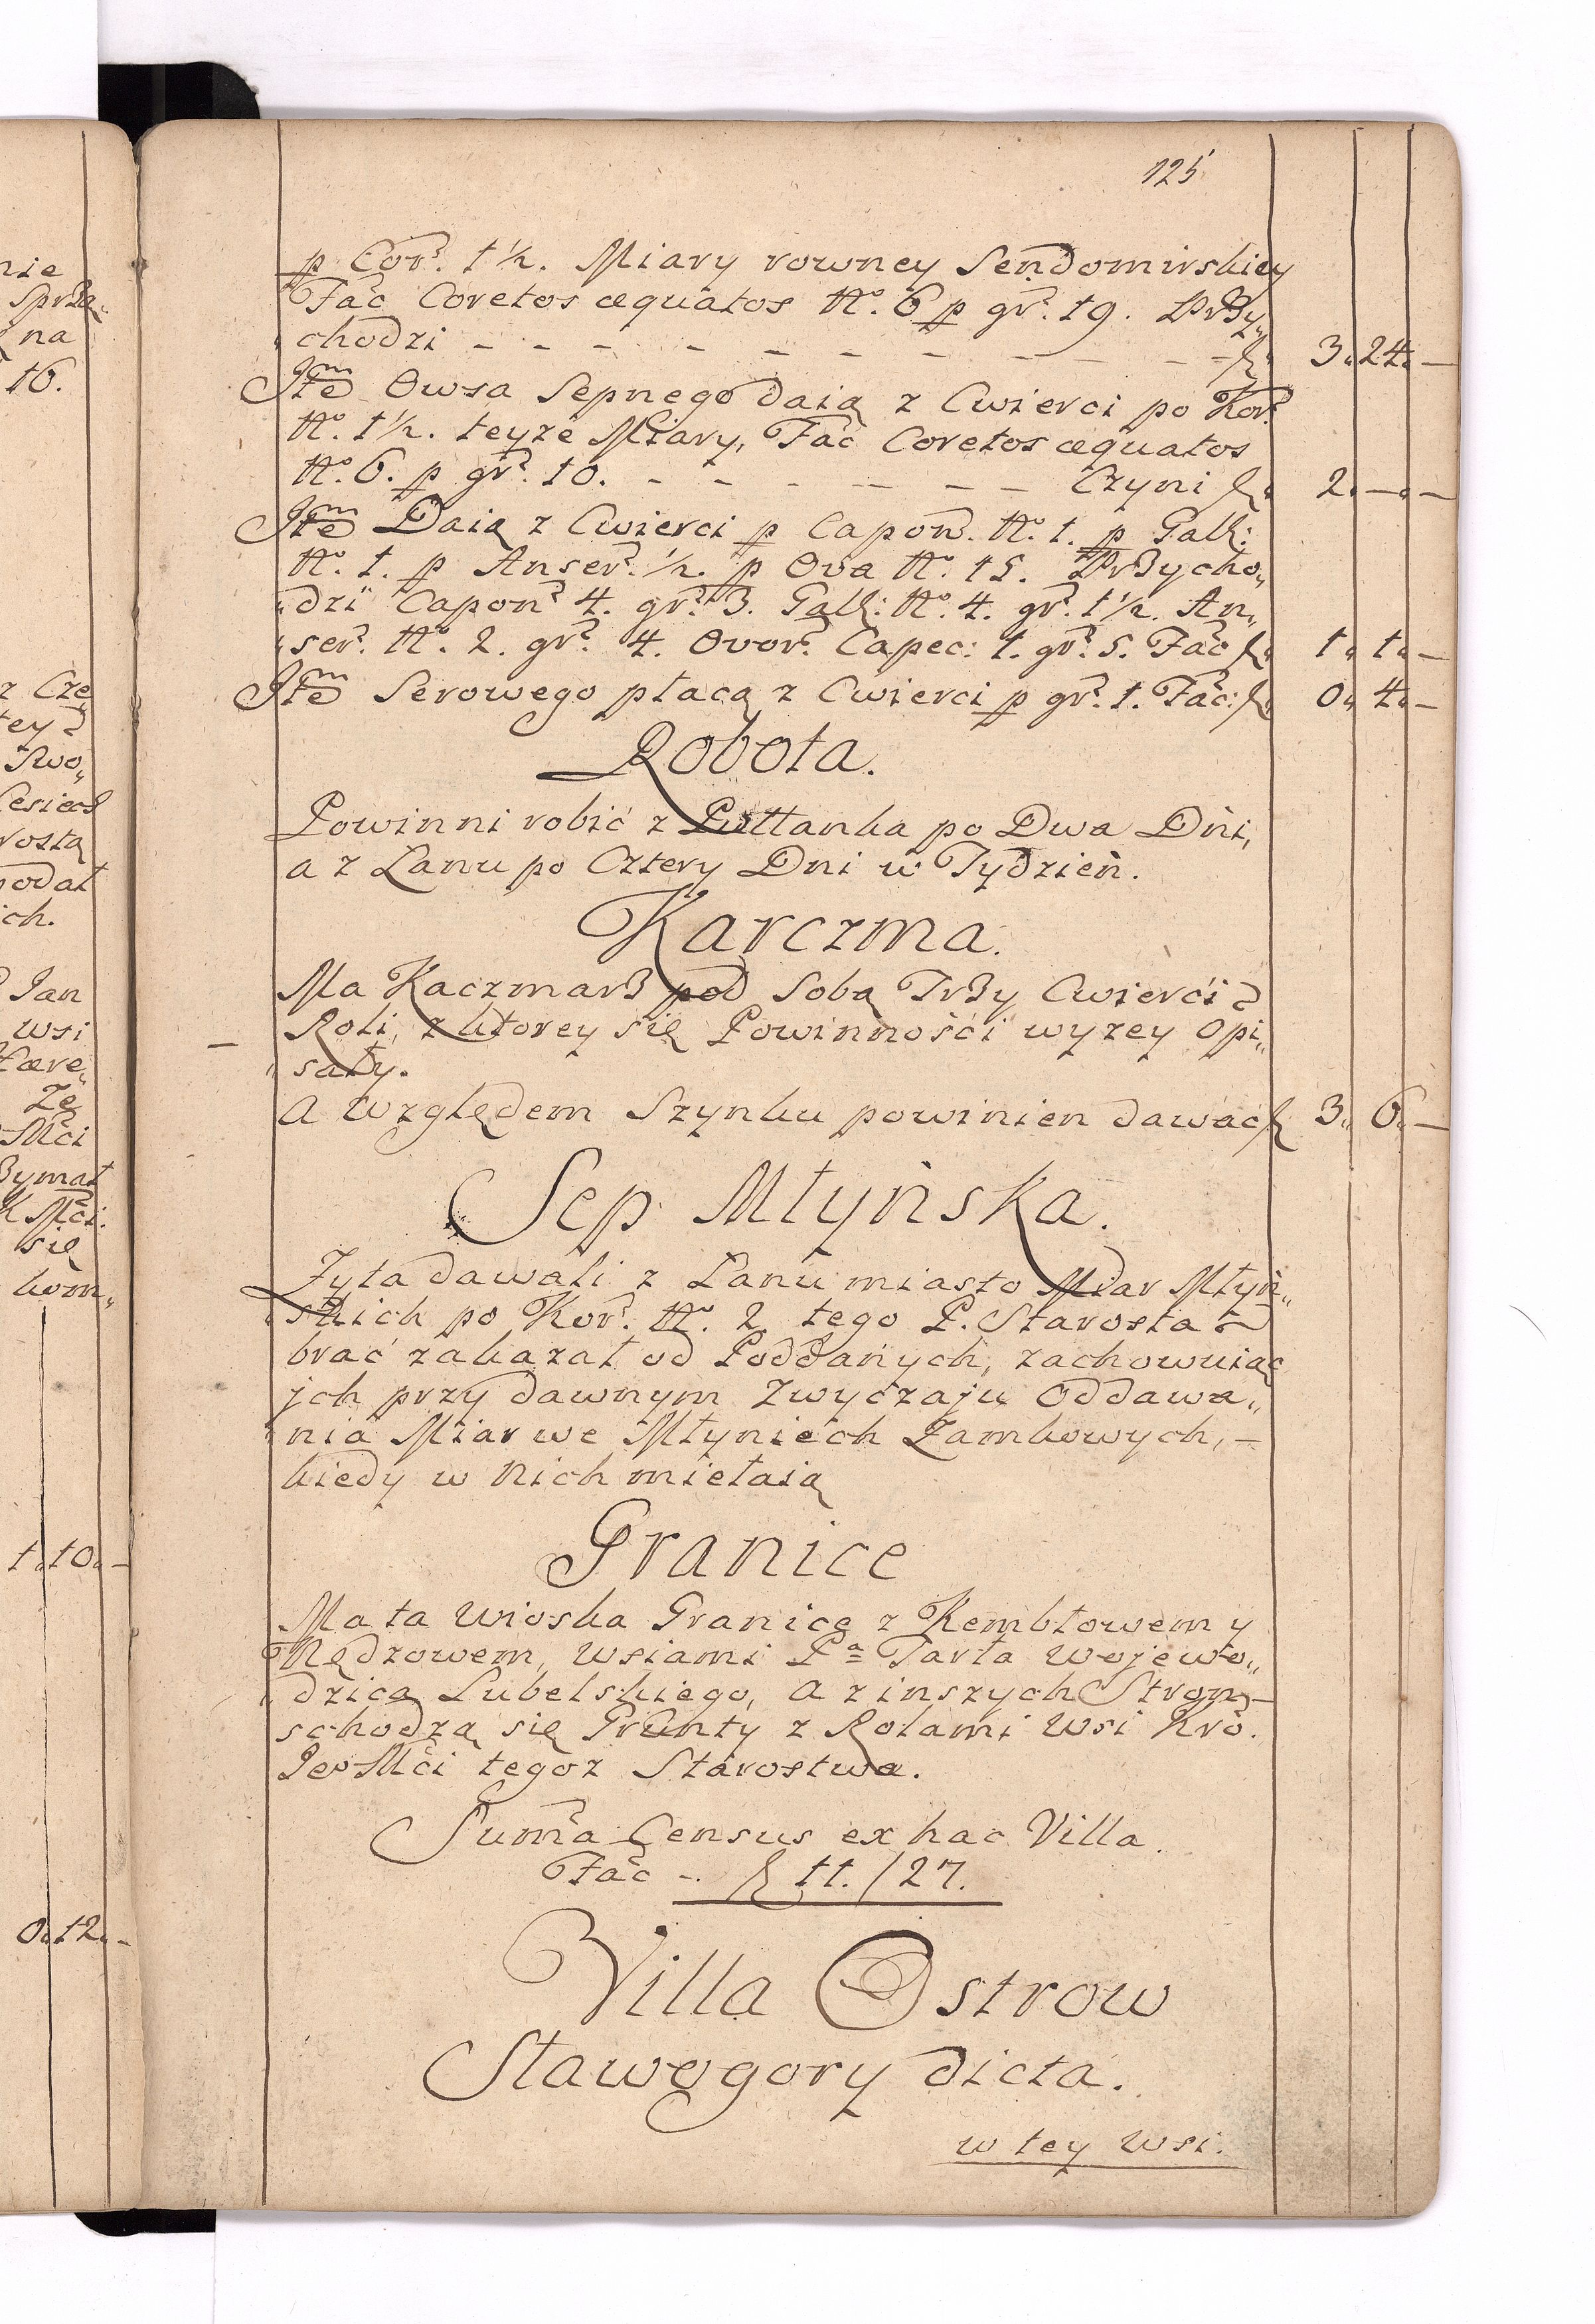 125
p Cor. 1½. Miary rowney Sendomirskiey
Fac̃ Coretos æquatos No. 6 p gr. 19. Przy„
„chodzi - - - - - - - - - - - fl. 3„ 24„ —
Itẽm Owsa Sepnego daią z Cwierci po Kor.
No. 1½. teyże Miary, Fac̃ Coretos æquatos
No. 6. p gr. 10. - - - - - - - Czyni fl. 2„ —„ —
Itẽm Daią z Cwierci p Capon. No. 1. p Gall:
No. 1. p Anser. ½. p Ova No. 15. Przycho„
„dzi Capon 4. gr. 3. Gall: No. 4. gr. 1½. An„
„ser. No. 2. gr. 4. Ovor. Capec: 1. gr. 5. Fac̃ fl. 1„ 1„ —
Itẽm Serowego płacą z Cwierci p gr. 1. Fac̃: fl. 0„ 4„ —
Robota.
Powinni robić z Pułłanka po Dwa Dni,
a z Łanu po Cztery Dni w Tydzień.
Karczma.
Ma Kaczmarz pod Sobą Trzy Cwierci
Roli, z ktorey się Powinnośći wyżey opi„
„sały.
A Względem Szynku powinien dawać fl. 3„ 6„ —
Sep Młyńska.
Żyta dawali z Łanu miasto Miar Młyń„
„skich po Kor. No. 2 tego P. Starosta
brać zakazał od Poddanych, zachowuiąc
jch przy dawnym Zwyczaju Oddawa„
„nia Miar we Młyniech Zamkowych, —
kiedy w Nich mielaią
Granice
Ma ta Wioska Granicę z Kembłowem y
Nędzowem, Wsiami Pa Tarła Wojewo„
„dzica Lubelskiego, a z inszych Stron —
schodzą się Grunty z Rolami Wsi Kró.
Jeo Mći tegoż Starostwa.
Suma Census ex hac Villa.
Fac̃ -. fl 11. /27.
Villa Ostrow
Sławogory dicta.
w tey Wsi.